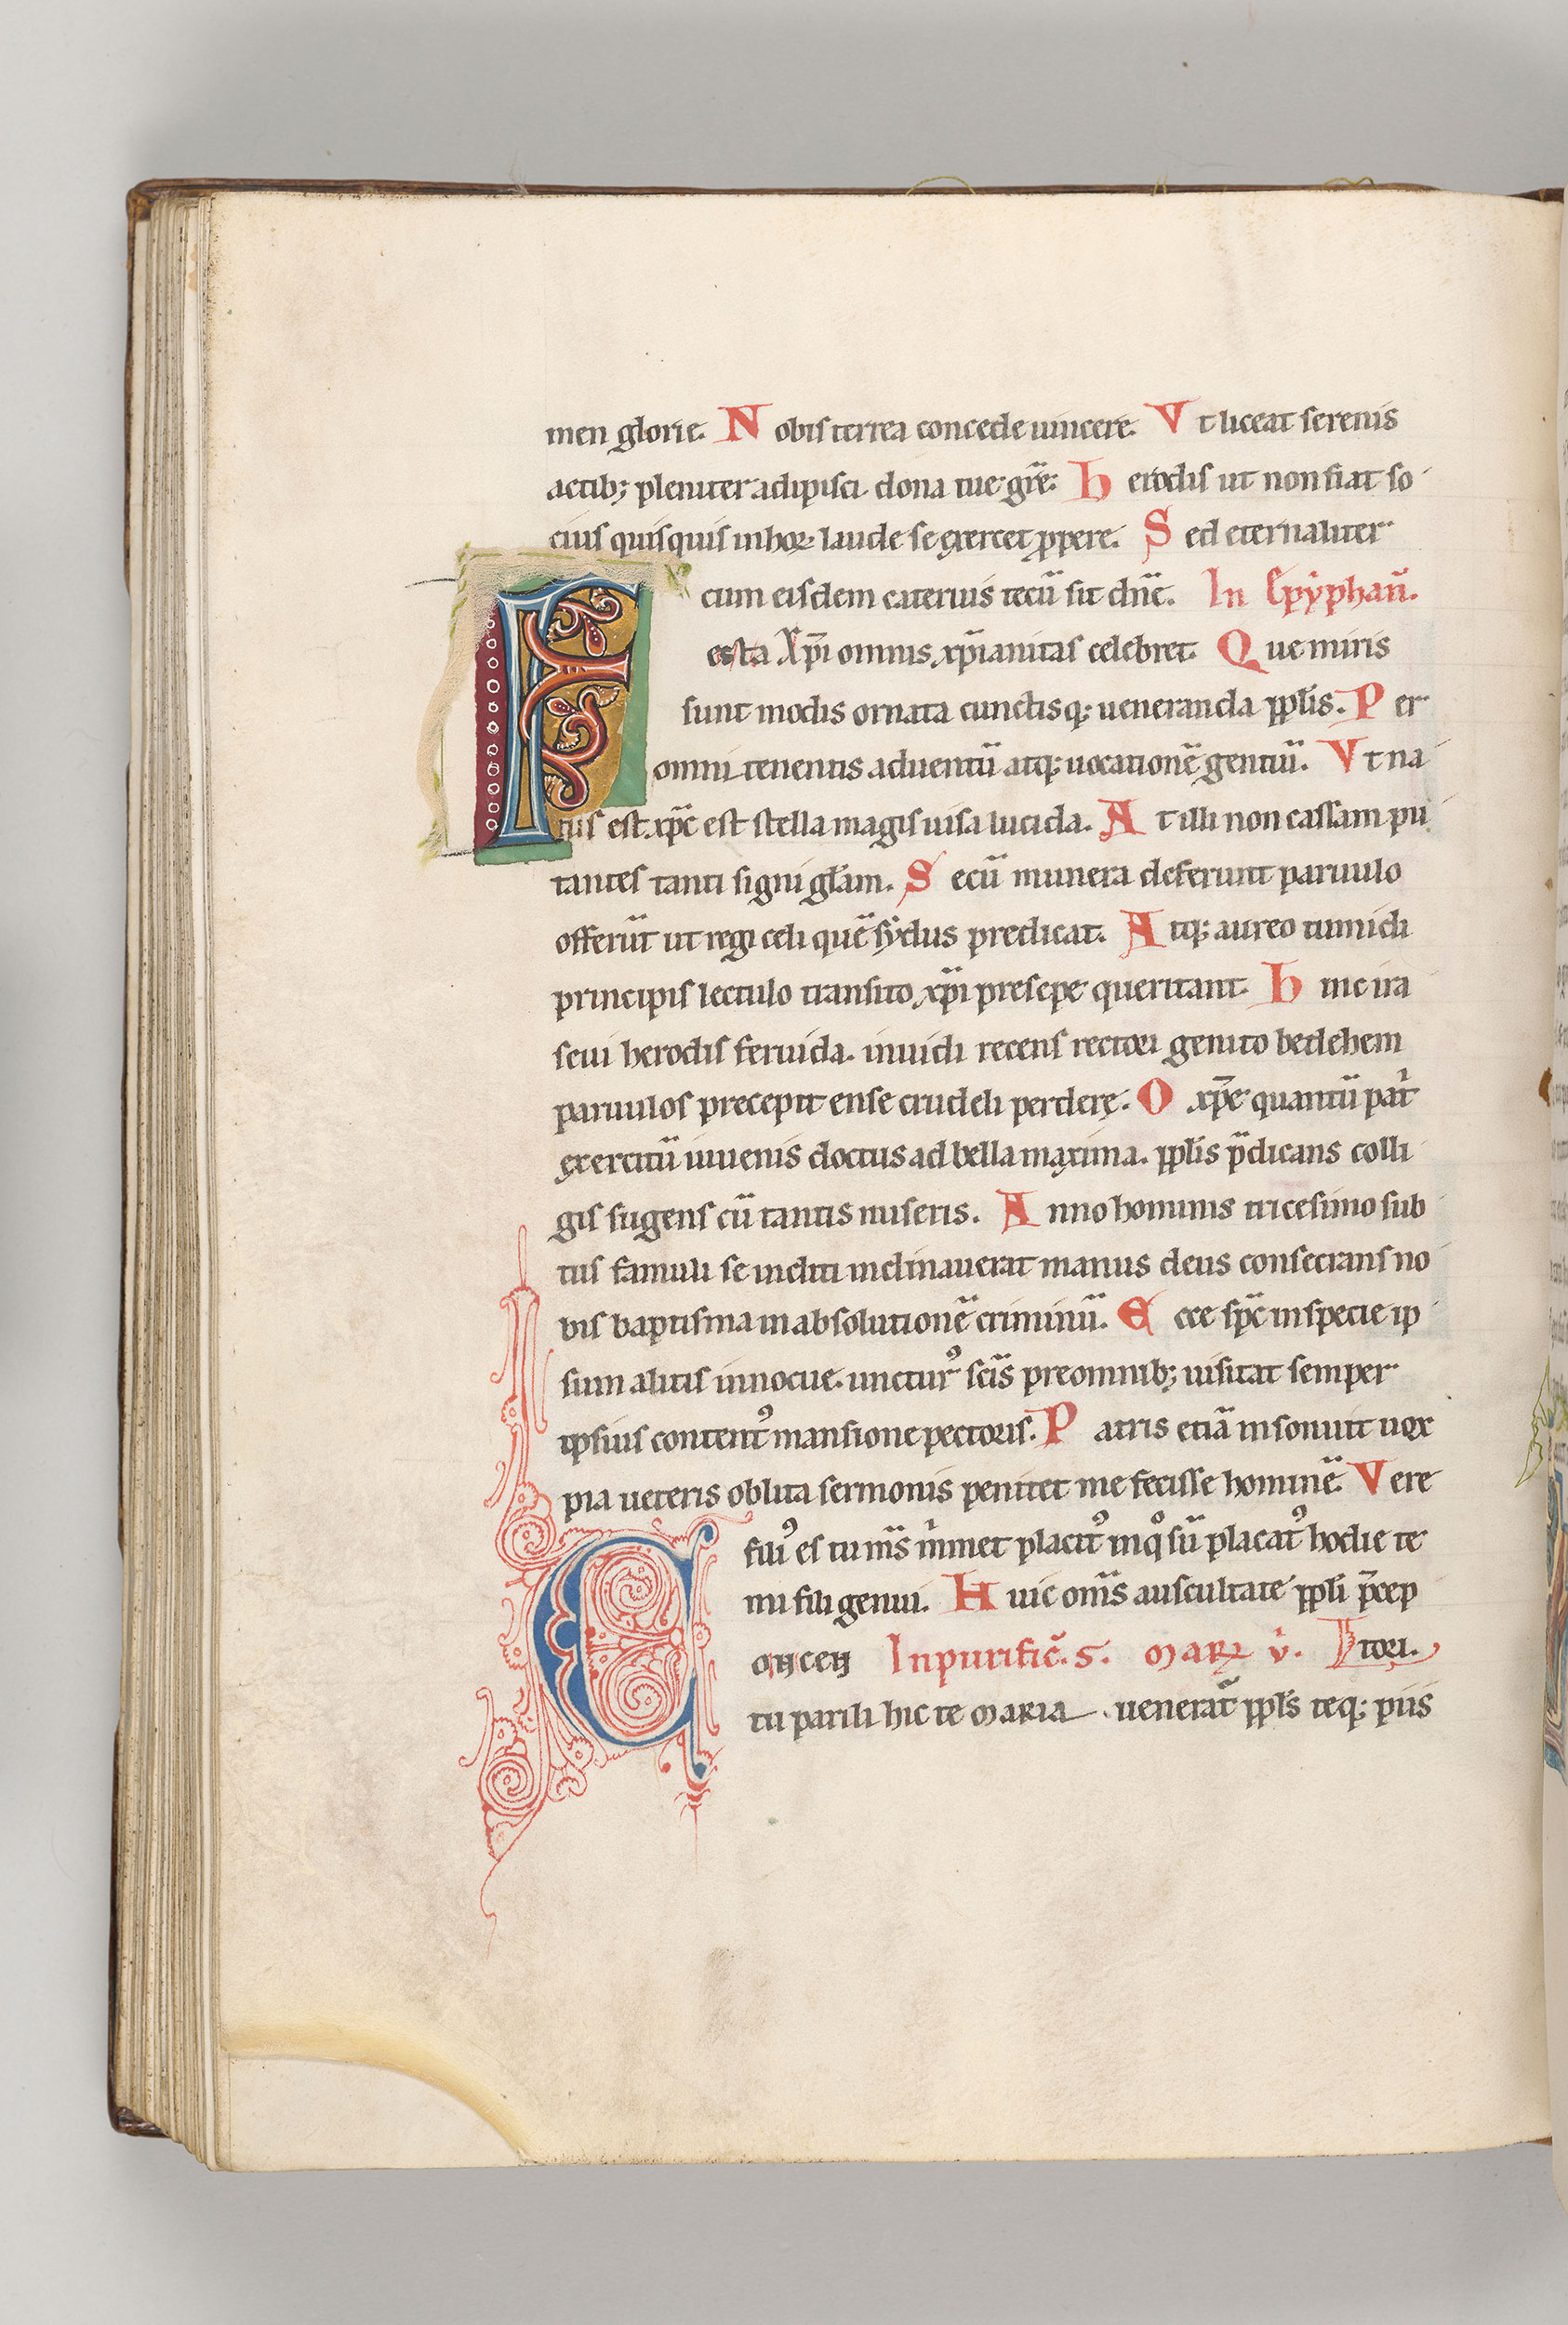 men glorie. Nobis terrea concede uincere. Vt liceat serenis
actib; pleniter adipisci dona tue gr̄e. Herodis ut non fiat so
cius quisquis in horꝝ laude se exercet ꝓpere. Sed eternaliter
cum eisdem cateruis tecū sit dn̄e. In Epẏphan̄.
Festa Xp̄i omnis xp̄ianitas celebret. Que miris
sunt modis ornata cunctisq; ueneranda ppl̄is. Per
omnitenentis aduentū atq; uocationē gentiū. Vt na
tus est xp̄c est stella magis uisa lucida. At illi non cassam pu
tantes tanti signi gl̄am. Secū munera deferunt paruulo
offerūt ut regi celi quē sẏdus predicat. Atq; aureo tumidi
principis lectulo transito xp̄i presepe queritant. Hinc ira
seui herodis feruida. inuidi recens rectori genito bedlehem
paruulos precepit ense crudeli perdere. O xp̄e quantū pat̄
exercitū iuuenis doctus ad bella maxima. ppl̄is p̄dicans colli
gis sugens cū tantis miseris. Anno hominis tricesimo sub
tus famuli se incliti inclinauerat manus deus consecrans no
bis baptisma in absolutionē criminū. Ecce sp̄c in specie ip
sum alitis innocue. unctur᾿ sc̄is pre omnib; uisitat semper
ipsius content᾿ mansione pectoris. Patris etiā insonuit uox
pia ueteris oblita sermonis penitet me fecisse hominē. Vere
fili᾿ es tu m̄s m̍met placit᾿ in qͦ sū placat᾿ hodie te
mi fili genui. Huic om̄s auscultate ppl̄i p̄cep
Concen In purific̄. S. MARꝭ v̍. tori.
tu parili hic te MARIA uenerat̄ ppl̄s teq; piis